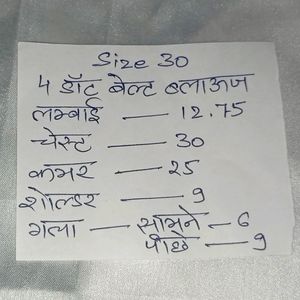 Size 30
4 डॉट बेल्ट ब्लाऊज
लम्बाई — 12.75
चेस्ट — 30
कमर — 25
शोल्डर — 9
गला — सामने — 6
पीछे — 9